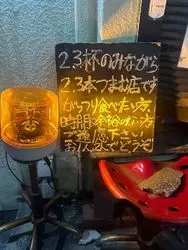 2.3杯のみながら
2.3本つまむ店です
がっつり食べたい方、
時間に余裕のない方
ご遠慮下さい
お1人でどうぞ